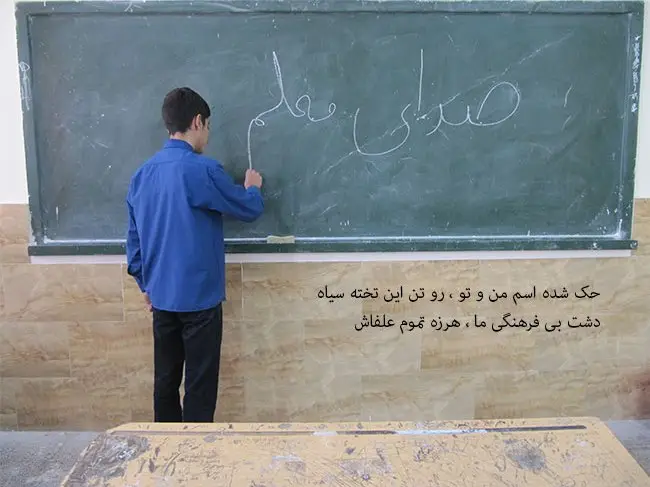 صدای معلم
حک شده اسم من و تو ، رو تن این تخته سیاه
دشت بی فرهنگی ما ، هرزه تموم علفاش